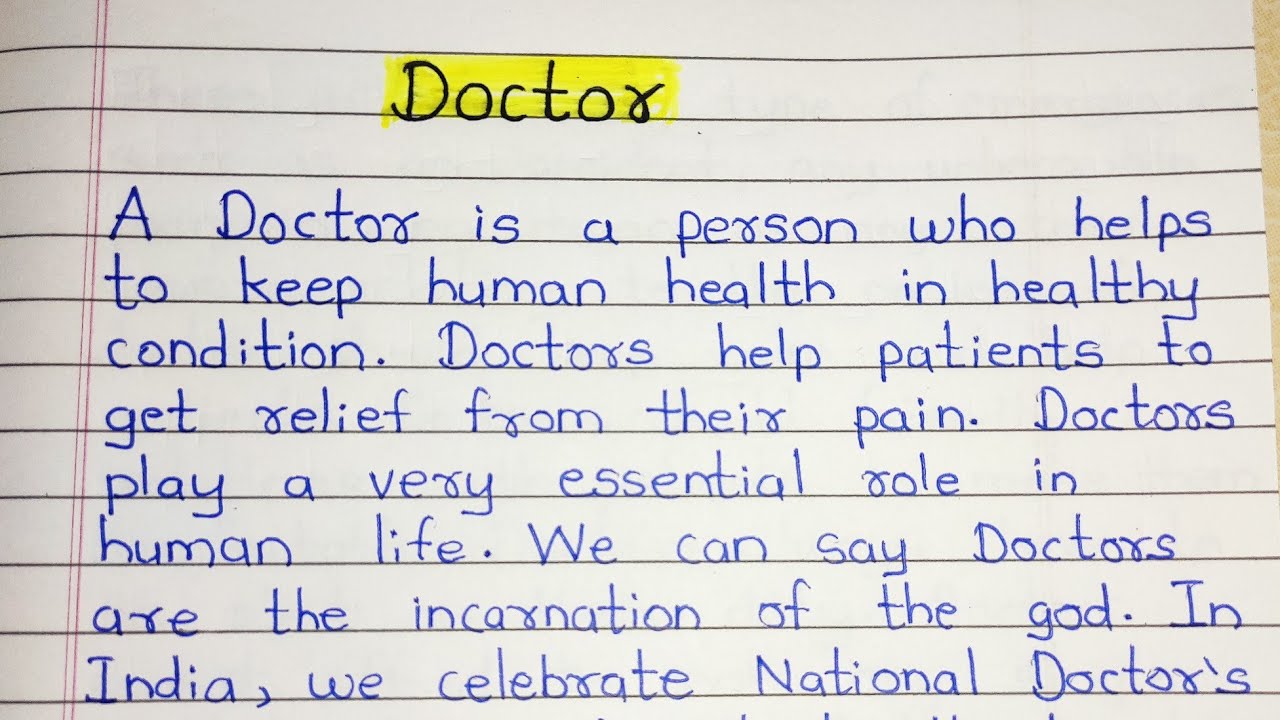 Doctor
A Doctor is a person who helps
to keep human health in healthy
condition. Doctors help patients to
get relief from their pain. Doctors
play a very essential role in
human life. We can say Doctors
are the incarnation of the god. In
India, we celebrate National Doctor's